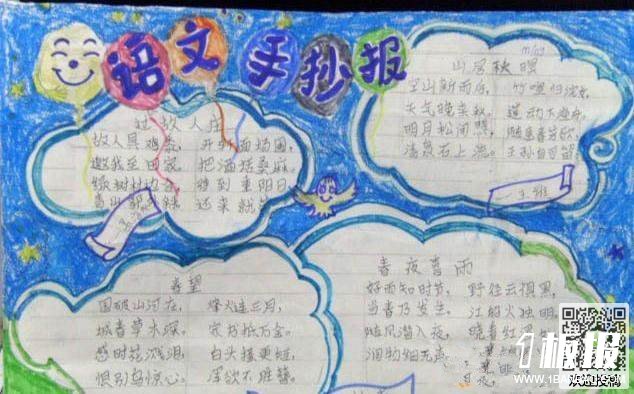 语文手抄报
过故人庄
故人具鸡 开轩面场圃,
邀我至田家 把酒话桑麻.
绿树村边 待到重阳日,
还来就
míng
山居秋暝
空山新雨后, 竹喧归浣女,
天气晚来秋. 莲动下渔舟.
明月松间照, 随意春芳歇,
清泉石上流. 王孙自可留.
—王维
春望
国破山河在, 烽火连三月,
城春草木深. 家书抵万金.
感时花溅泪, 白头搔更短,
恨别鸟惊心. 浑欲不胜簪.
春夜喜雨
好雨知时节, 野径云俱黑,
当春乃发生. 江船火独明.
随风潜入夜, 晓看红
润物细无声.
板报
WWW.1BANBAO.COM